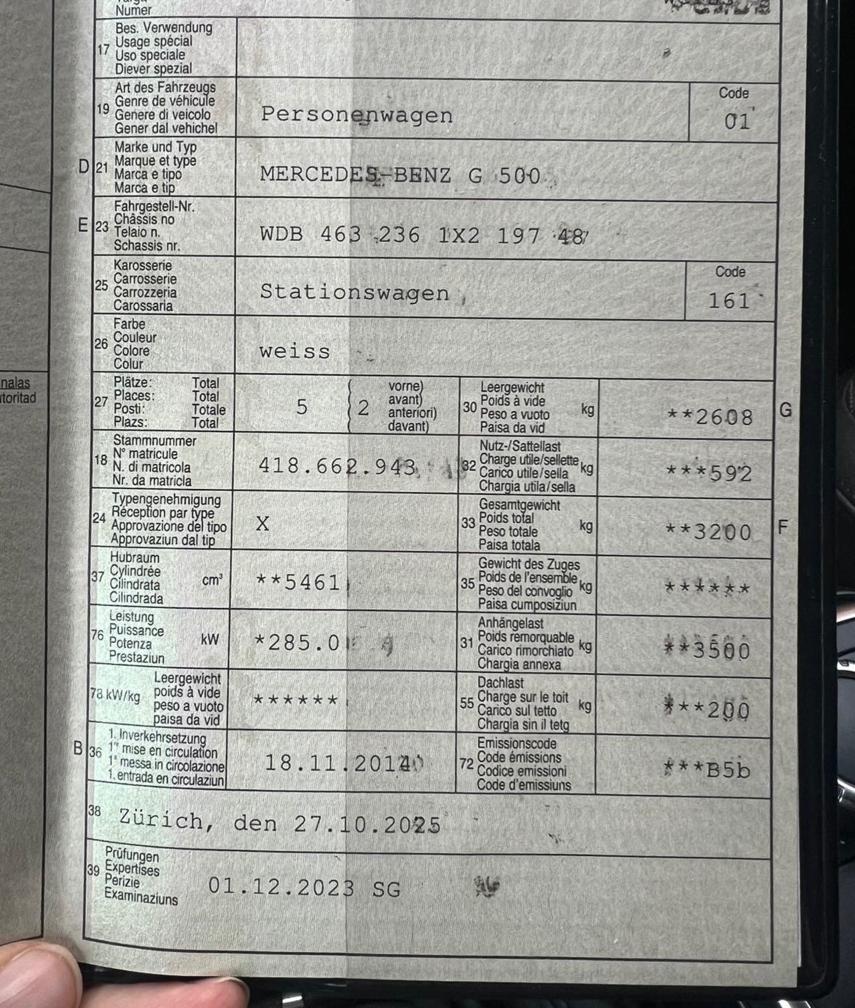 Numer
17 Bes. Verwendung
Usage spécial
Uso speciale
Diever spezial
19 Art des Fahrzeugs
Genre de véhicule
Genere di veicolo
Gener dal vehichel
Personenwagen
Code
01
D 21 Marke und Typ
Marque et type
Marca e tipo
Marca e tip
MERCEDES-BENZ G 500
E 23 Fahrgestell-Nr.
Châssis no
Telaio n.
Schassis nr.
WDB 463 236 1X2 197 48
25 Karosserie
Carrosserie
Carrozzeria
Carossaria
Stationswagen
Code
161
26 Farbe
Couleur
Colore
Colur
weiss
27 Plätze: Total
Places: Total
Posti: Totale
Plazs: Total
5
2 vorne)
avant)
anteriori)
davant)
30 Leergewicht
Poids à vide
Peso a vuoto
Paisa da vid
kg
**2608
G
18 Stammnummer
N° matricule
N. di matricola
Nr. da matricla
418.662.943
32 Nutz-/Sattellast
Charge utile/sellette
Carico utile/sella
Chargia utila/sella
kg
***592
24 Typengenehmigung
Réception par type
Approvazione del tipo
Approvaziun dal tip
X
33 Gesamtgewicht
Poids total
Peso totale
Paisa totala
kg
**3200
F
37 Hubraum
Cylindrée
Cilindrata
Cilindrada
cm³
**5461
35 Gewicht des Zuges
Poids de l'ensemble
Peso del convoglio
Paisa cumposiziun
kg
******
76 Leistung
Puissance
Potenza
Prestaziun
kW
*285.0
31 Anhängelast
Poids remorquable
Carico rimorchiato
Chargia annexa
kg
**3500
78 kW/kg Leergewicht
poids à vide
peso a vuoto
paisa da vid
******
55 Dachlast
Charge sur le toit
Carico sul tetto
Chargia sin il tetg
kg
***200
B 36 1. Inverkehrsetzung
1re mise en circulation
1a messa in circolazione
1. entrada en circulaziun
18.11.2014
72 Emissionscode
Code émissions
Codice emissioni
Code d'emissiuns
***B5b
38 Zürich, den 27.10.2025
39 Prüfungen
Expertises
Perizie
Examinaziuns
01.12.2023 SG
nalas
toritad